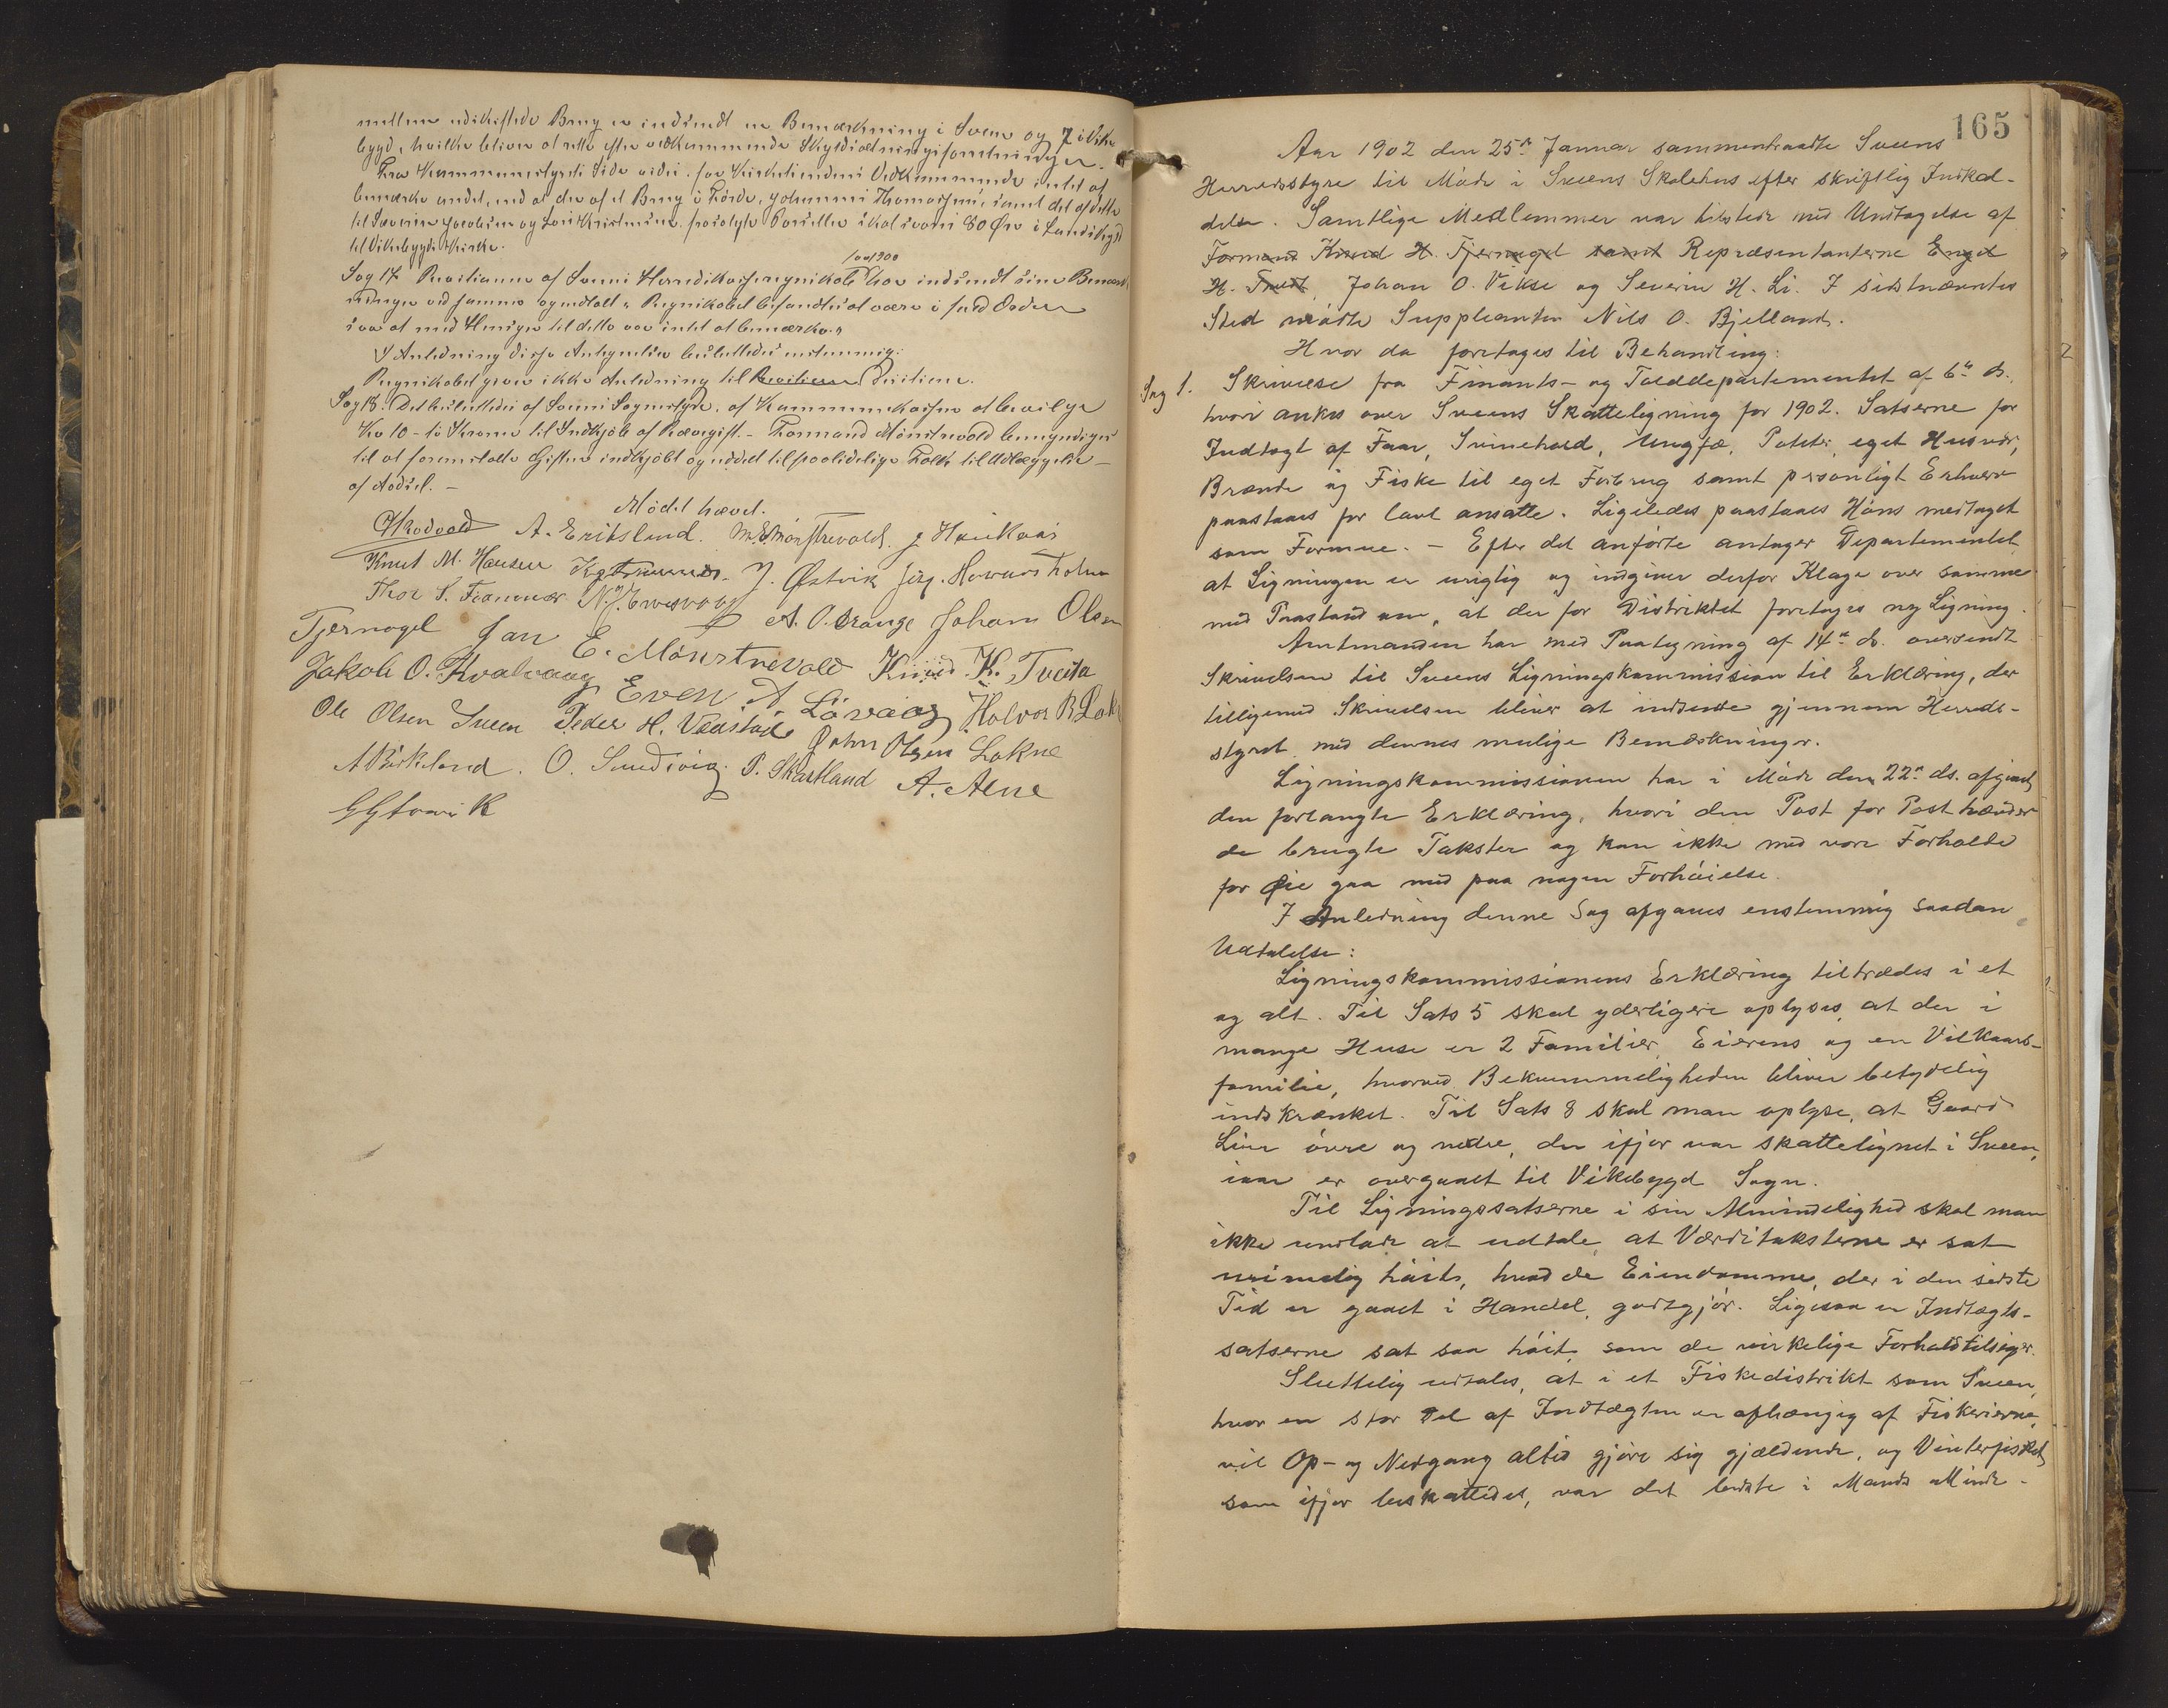 mellem udskiftede Brug er indsendt en Bemærkning i Sveen og 7 i Vike
bygd, hvilke bliver at rette efter vedkommende Skyldsætningsforretninger.
Fra Kommunestyrets Side vides for Kirketiendens Vedkommende intet at
bemærke andet, end at der af et Brug i Förde, Johannes Thomassens, samt det afdelte
til Severin Jacobsen og Lars Kristensen frasolgte Parseller skal svares 80 Øre i
til Vikebygds Kirke.
for 1900
Sag 17. Revisionen af Sveens Herredskasseregnskab har indsendt sine Bemærk
ninger ved samme og udtalt: "Regnskabet befandtes at være i god Orden
saa at med Hensyn til dette var intet at bemærke."
I Anledning disse Antegnelser besluttedes enstemmig:
Regnskabet giver ikke Anledning til Revisionen Decision.
Sag 18. Det besluttedes af Sveens Sognestyre, af Kommunekassen at bevilge
Kr 10 - ti Kroner til Indkjöb af Rævegift. - Formand Mönstrevold bemyndiges
til at foranstalte Giften indkjöbt og uddelt til paalidelige Folk til Udlæggelse -
af Aadsel. -
Mödet hævet.
A. Erikslund. M. E. Mönstrevold. J Haukaas
Knut M. Hansen J. Östvik Jörg. Howarsholm
Thor S. Framnæs N. J.
A. O. Brange Johans Olsen
Tjernagel Jan E. Mönstrevold Knud K. Tveita
Jakob O. Kvalvaag Even A Lövaag Halvor B Lok
Ole Olsen Sveen Peder H. Vaastad John Olsen Lokne
A Birkeland. O. Sundsvig. P. Skartland A. Alne
165
Aar 1902 den 25de Januar sammentraadte Sveens
Herredsstyre til Möde i Sveens Skolehus efter skriftlig Indkal-
delse. Samtlige Medlemmer var tilstede med Undtagelse af
Formand Knud H. Tjernagel samt Repræsentanterne Engel
H. Tveit, Johan O. Vikse og Severin H. Li. I sidstnævntes
Sted mödte Suppleanten Nils O. Bjelland.
Hvor da foretages til Behandling:
Sag 1. Skrivelse fra Finants- og Tolddepartementet af 6te ds.
hvori ankes over Sveens Skatteligning for 1902. Satserne for
Indtægt af Faar, Svinehold, Ungfæ, Potet, eget Husvær,
Brænde og Fiske til eget Forbrug samt personligt Erhverv
paastaaes for lavt ansatte. Ligeledes paastaaes Höns medtaget
som Formue. - Efter det anförte antager Departementet
at Ligningen er urigtig og indgiver derfor Klage over samme
med Paastand om, at der for Distriktet foretages ny Ligning.
Amtmanden har med Paategning af 14de ds. oversendt
Skrivelsen til Sveens Ligningskommission til Erklæring, der
tilligemed Skrivelsen bliver at indsende gjennem Herreds-
styret med dennes mulige Bemærkninger.
Ligningskommissionen har i Möde den 22de ds. afgivet
den forlangte Erklæring, hvori den Post for Post hævder
de brugte Takster og kan ikke med vore Forholde
for Öie gaa med paa nogen Forhöielse.
I Anledning denne Sag afgaves enstemmig saadan
Udtalelse:
Ligningskommissionens Erklæring tiltrædes i et
og alt. Til Sats 5 skal yderligere oplyses, at der i
mange Huse er 2 Familier, Eierens og en Vilkaars-
familie, hvorved Bekvemmeligheden bliver betydelig
indskrænket. Til Sats 8 skal man oplyse, at Gaard
Lier övre og nedre, der ifjor var skattelignet i Sveen,
iaar er overgaaet til Vikebygd Sogn.
Til Ligningssatserne i sin Almindelighed skal man
ikke undlade at udtale, at Værditaksterne er sat
urimelig höit, hvad de Eiendomme, der i den sidste
Tid er gaaet i Handel, godtgjör. Ligesaa er Indtægts-
satserne sat saa höit, som de virkelige Forhold tilsiger.
Sluttelig udtales, at i et Fiskedistrikt som Sveen,
hvor en stor Del af Indtægten er afhængig af Fiskerierne,
vil Op- og Nedgang altid gjöre sig gjældende, og Vinterfisket,
som ifjor beskattedes, var det bedste i Mands Minde.